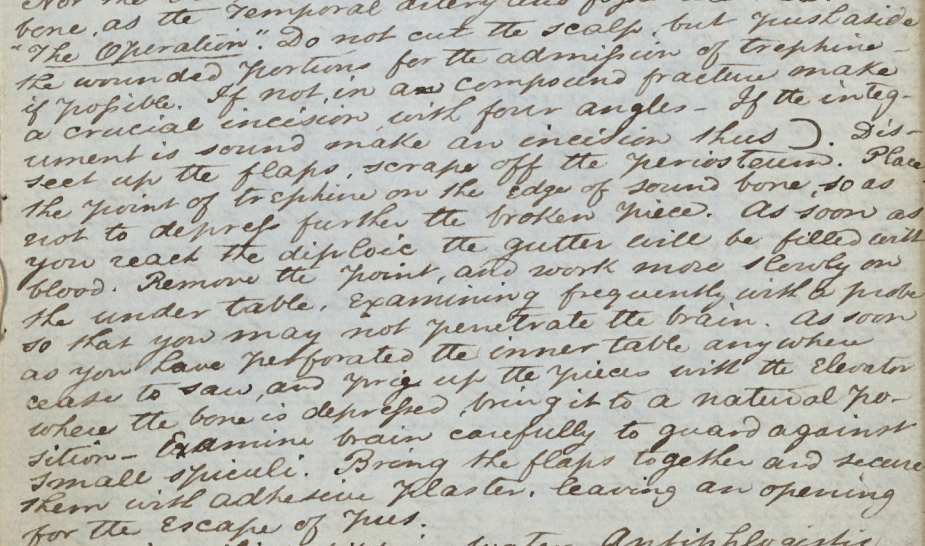 bone, as the Temporal artery and
"The Operation". Do not cut the scalp, but push aside
the wounded portions for the admission of trephine -
if possible. If not, in an compound fracture make
a crucial incision, with four angles - If the integ-
ument is sound make an incision thus ). Dis-
sect up the flaps, scrape off the periosteum. Place
the point of trephine on the edge of sound bone, so as
not to depress further the broken piece. As soon as
you reach the diploic the gutter will be filled with
blood. Remove the point, and work more slowly on
the under table, Examining frequently with a probe
so that you may not penetrate the brain. As soon
as you have perforated the inner table anywhere
cease to saw, and prig up the pieces with the Elevator
where the bone is depressed, bring it to a natural po-
sition - Examine brain carefully to guard against
small spiculi. Bring the flaps together and secure
them with adhesive plaster, leaving an opening
for the Escape of pus.
water Antiphlogistic